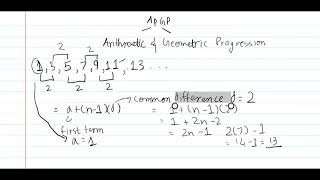 AP GP
Arithmetic & Geometric Progression
2 2 2
1, 3, 5, 7, 9, 11, 13 ...
2 2 2
common difference d = 2
= a + (n-1)(d) = 1 + (n-1)(2)
first term = 1 + 2n - 2
a = 1 = 2n - 1 2(7) - 1
= 14 - 1 = 13